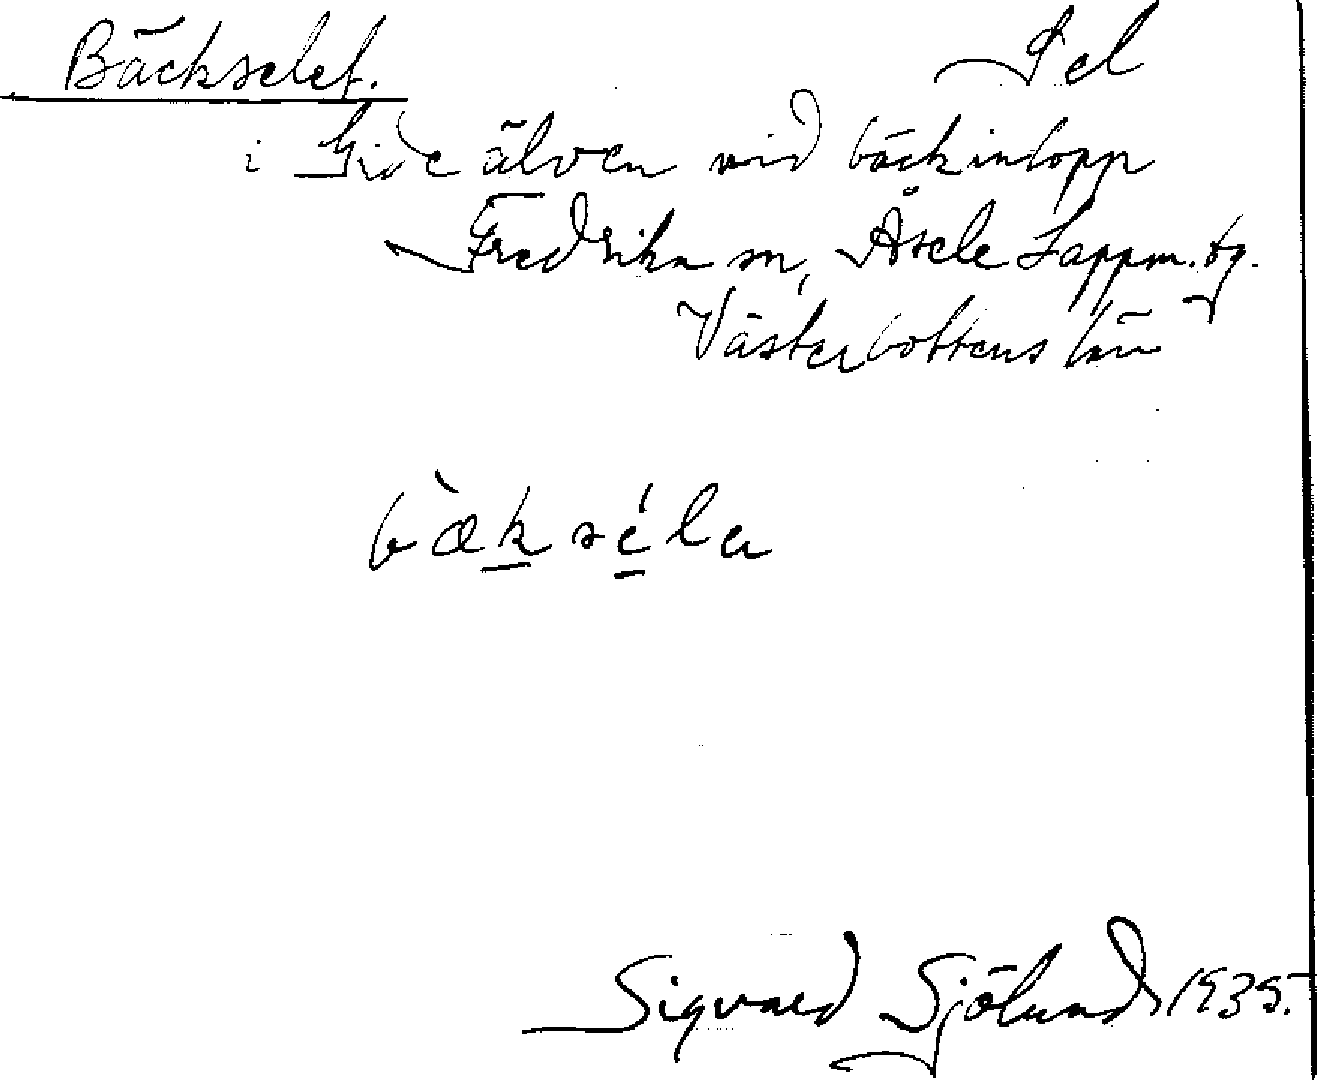 Bäckselet. Sel
i Gideälven vid bäckinlopp
Fredrika sn, Åsele Lappm. tg.
Västerbottens län
bæ̀k séla
Sigvard Sjölund 1935.